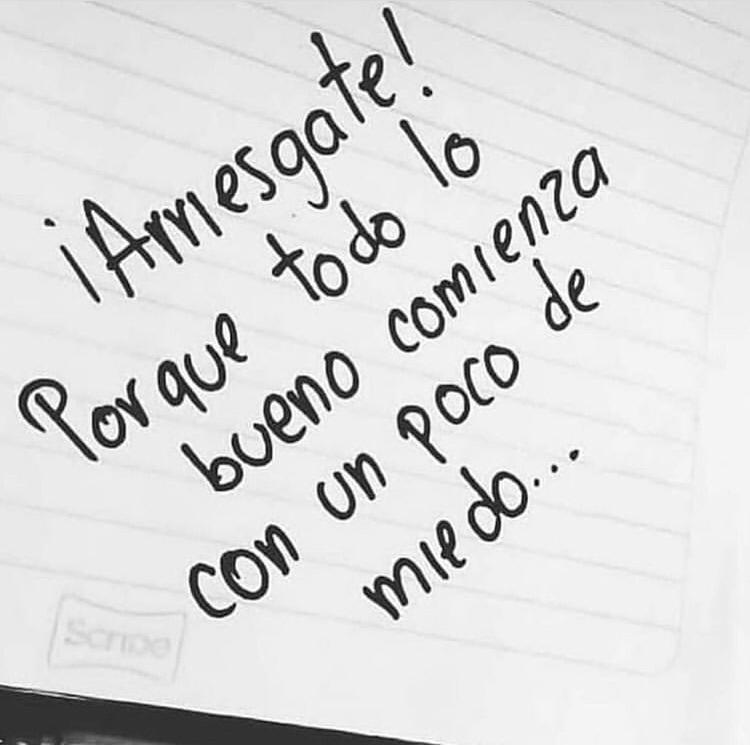 ¡Arriesgate!
Porque todo lo
bueno comienza
con un poco de
miedo...
Scribe